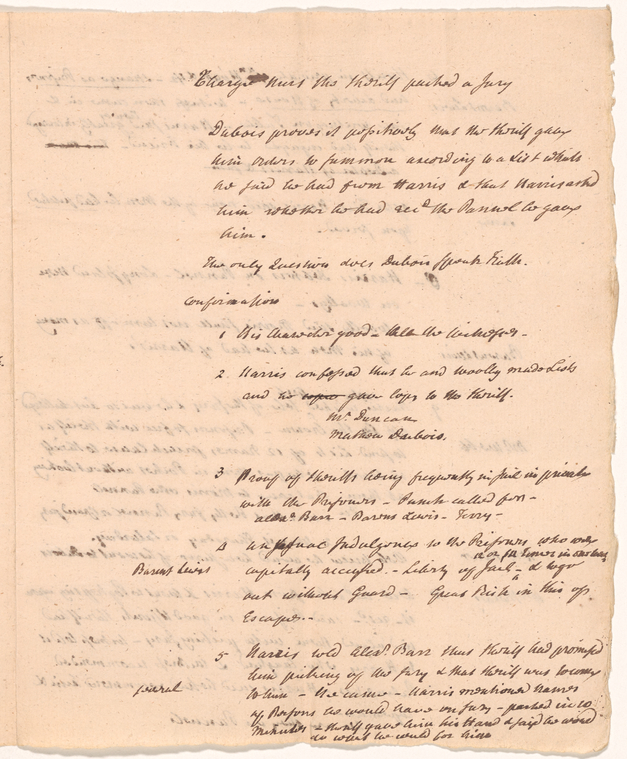 Charge that the Sheriff packed a Jury
Dubois proves it positively that the Sheriff gave
him orders to summon according to a List which
he said he had from Harris & that Harris asked
him whether he had recd. the Pannel he gave
him.
The only Question does Dubois speak Truth.
Confirmation
1 His Character good - the Witnesses -
2 Harris confessed that he and Woolly made Lists
and he gave Copy to the Sheriff.
Mr. Duncan
Mathew Dubois.
3 Proof of Sheriffs being frequently in Jail in private
with the Prisoners - Punch called for -
Alexr. Barr - Barent Lewis - Terry -
4 unusual Indulgence to the Prisoners who were
capitally accused. - Liberty of Jail - & to go
2 or 3 Times in
Barent Lewis
out without Guard - Great Risk in this of
Escape. -
5 Harris told Alexr. Barr that Sheriff had promised
him picking of the Jury & that Sheriff was to come
several
to him - He came - Harris mentioned Names
of Persons he would have on Jury - packed in 10
Minutes - Sheriff gave him his Hand & said he would
do what he could for him